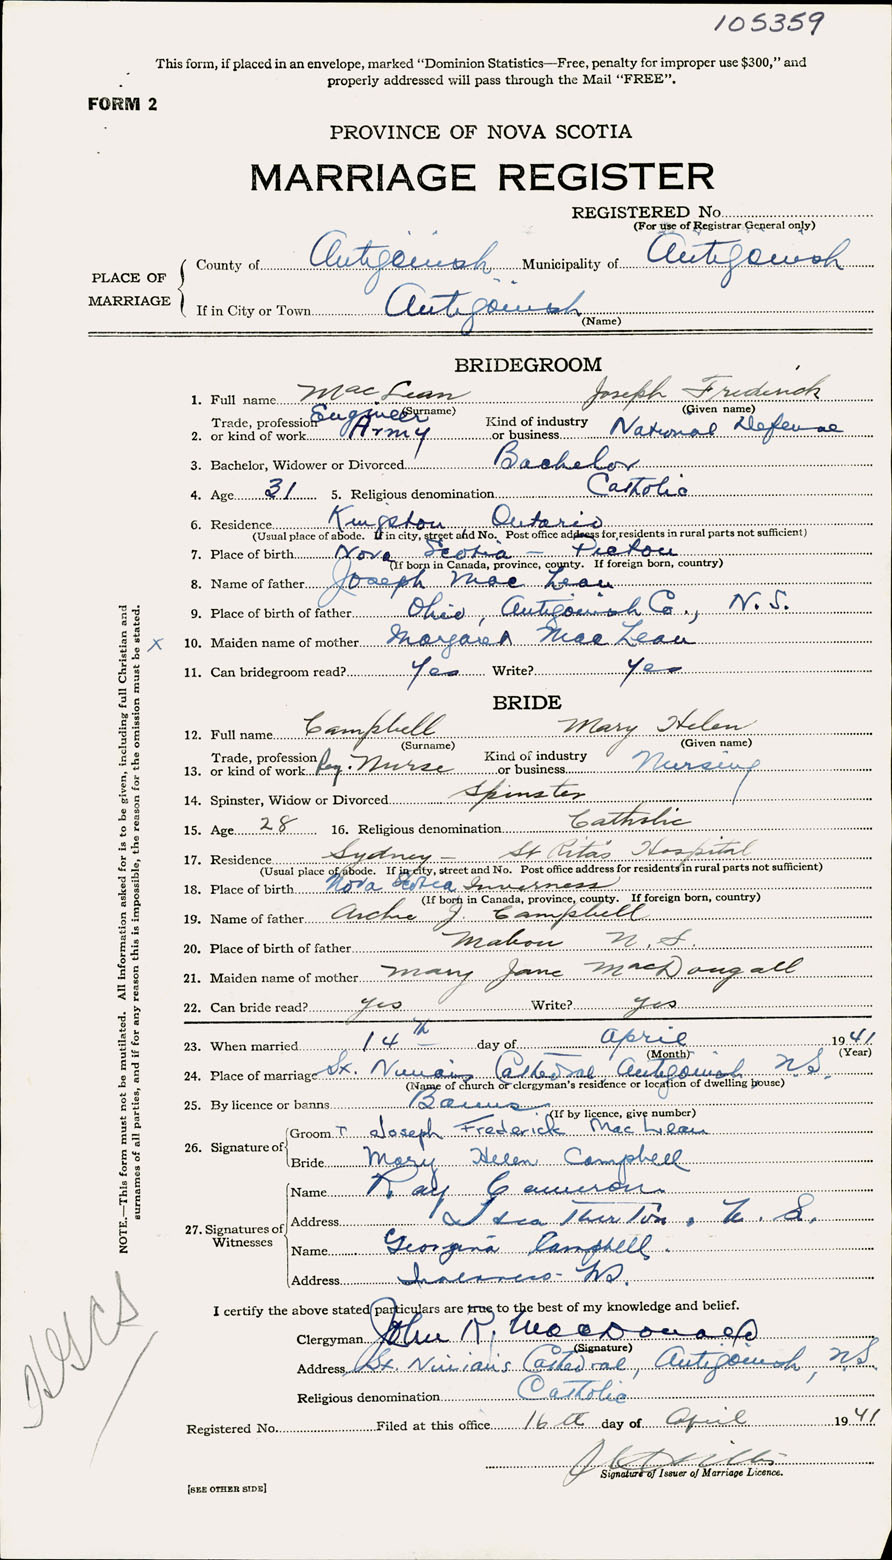 105359
This form, if placed in an envelope, marked "Dominion Statistics—Free, penalty for improper use $300," and
properly addressed will pass through the Mail "FREE".
FORM 2
PROVINCE OF NOVA SCOTIA
MARRIAGE REGISTER
REGISTERED No.
(For use of Registrar General only)
PLACE OF MARRIAGE
County of Antigonish Municipality of Antigonish
If in City or Town Antigonish
(Name)
BRIDEGROOM
1. Full name MacLean Joseph Frederick
(Surname) (Given name)
2. Trade, profession or kind of work Engineer Army Kind of industry or business National Defense
3. Bachelor, Widower or Divorced Bachelor
4. Age 31 5. Religious denomination Catholic
6. Residence Kingston, Ontario
(Usual place of abode. If in city, street and No. Post office address for residents in rural parts not sufficient)
7. Place of birth Nova Scotia — Pictou
(If born in Canada, province, county. If foreign born, country)
8. Name of father Joseph MacLean
9. Place of birth of father Ohio, Antigonish Co., N.S.
x 10. Maiden name of mother Margaret MacLean
11. Can bridegroom read? Yes Write? Yes
BRIDE
12. Full name Campbell Mary Helen
(Surname) (Given name)
13. Trade, profession or kind of work Reg. Nurse Kind of industry or business Nursing
14. Spinster, Widow or Divorced Spinster
15. Age 28 16. Religious denomination Catholic
17. Residence Sydney — St Rita's Hospital
(Usual place of abode. If in city, street and No. Post office address for residents in rural parts not sufficient)
18. Place of birth Nova Scotia Inverness
(If born in Canada, province, county. If foreign born, country)
19. Name of father Archie J. Campbell
20. Place of birth of father Mabou N.S.
21. Maiden name of mother Mary Jane MacDougall
22. Can bride read? yes Write? yes
23. When married 14th day of April 1941
(Month) (Year)
24. Place of marriage St. Ninian's Cathedral Antigonish N.S.
(Name of church or clergyman's residence or location of dwelling house)
25. By licence or banns Banns
(If by licence, give number)
26. Signature of
Groom Joseph Frederick MacLean
Bride Mary Helen Campbell
27. Signatures of Witnesses
Name Ray Cameron
Address N. S.
Name Georgina Campbell
Address Inverness - NS.
I certify the above stated particulars are true to the best of my knowledge and belief.
Clergyman John R. MacDonald
(Signature)
Address St. Ninian's Cathedral, Antigonish, NS
Religious denomination Catholic
Registered No. Filed at this office 16th day of April 1941
Signature of Issuer of Marriage Licence.
[SEE OTHER SIDE]
NOTE.—This form must not be mutilated. All information asked for is to be given, including full Christian and
surnames of all parties, and if for any reason this is impossible, the reason for the omission must be stated.